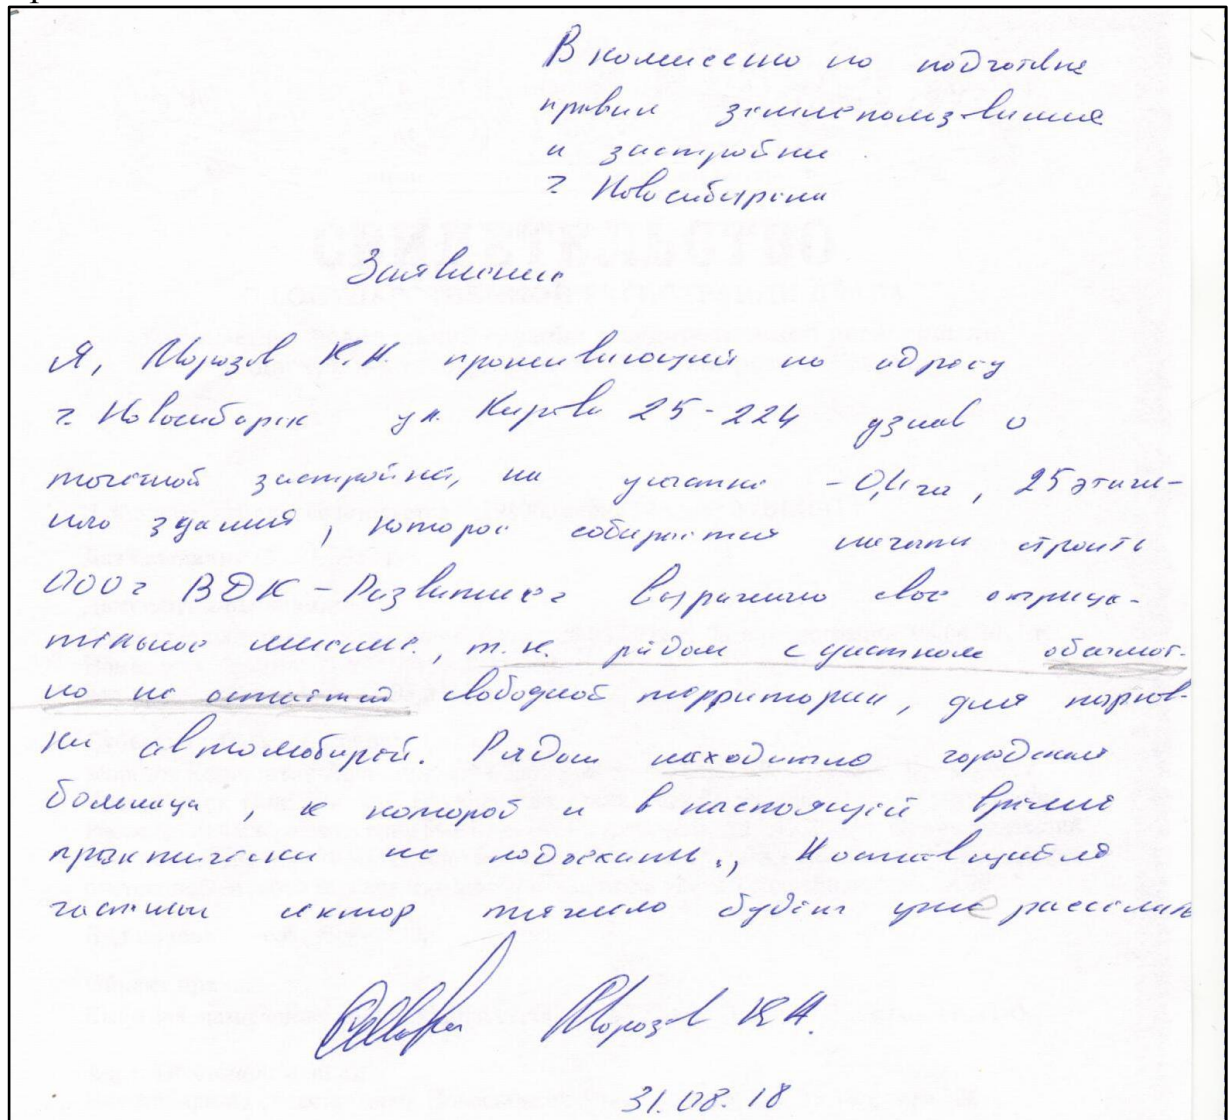 В комиссию по подготовке
правил землепользования
и застройки
г. Новосибирска
Заявление
Я, Морозов К.Н. проживающий по адресу
г. Новосибирск ул. Кирова 25-224 узнав о
точечной застройке, на участке - га, 25 этажн-
ого здания, которое собирается начать строить
ООО "ВДК-Развитие" выражаю свое отрица-
тельное мнение, т.к. рядом с участком
не остается свободной территории, для парков-
ки автомобилей. Рядом находится городская
больница, к которой и в настоящей время
практически не подъехать.,
частный сектор тяжело будет уже расселить
Морозов К.Н.
31.08.18